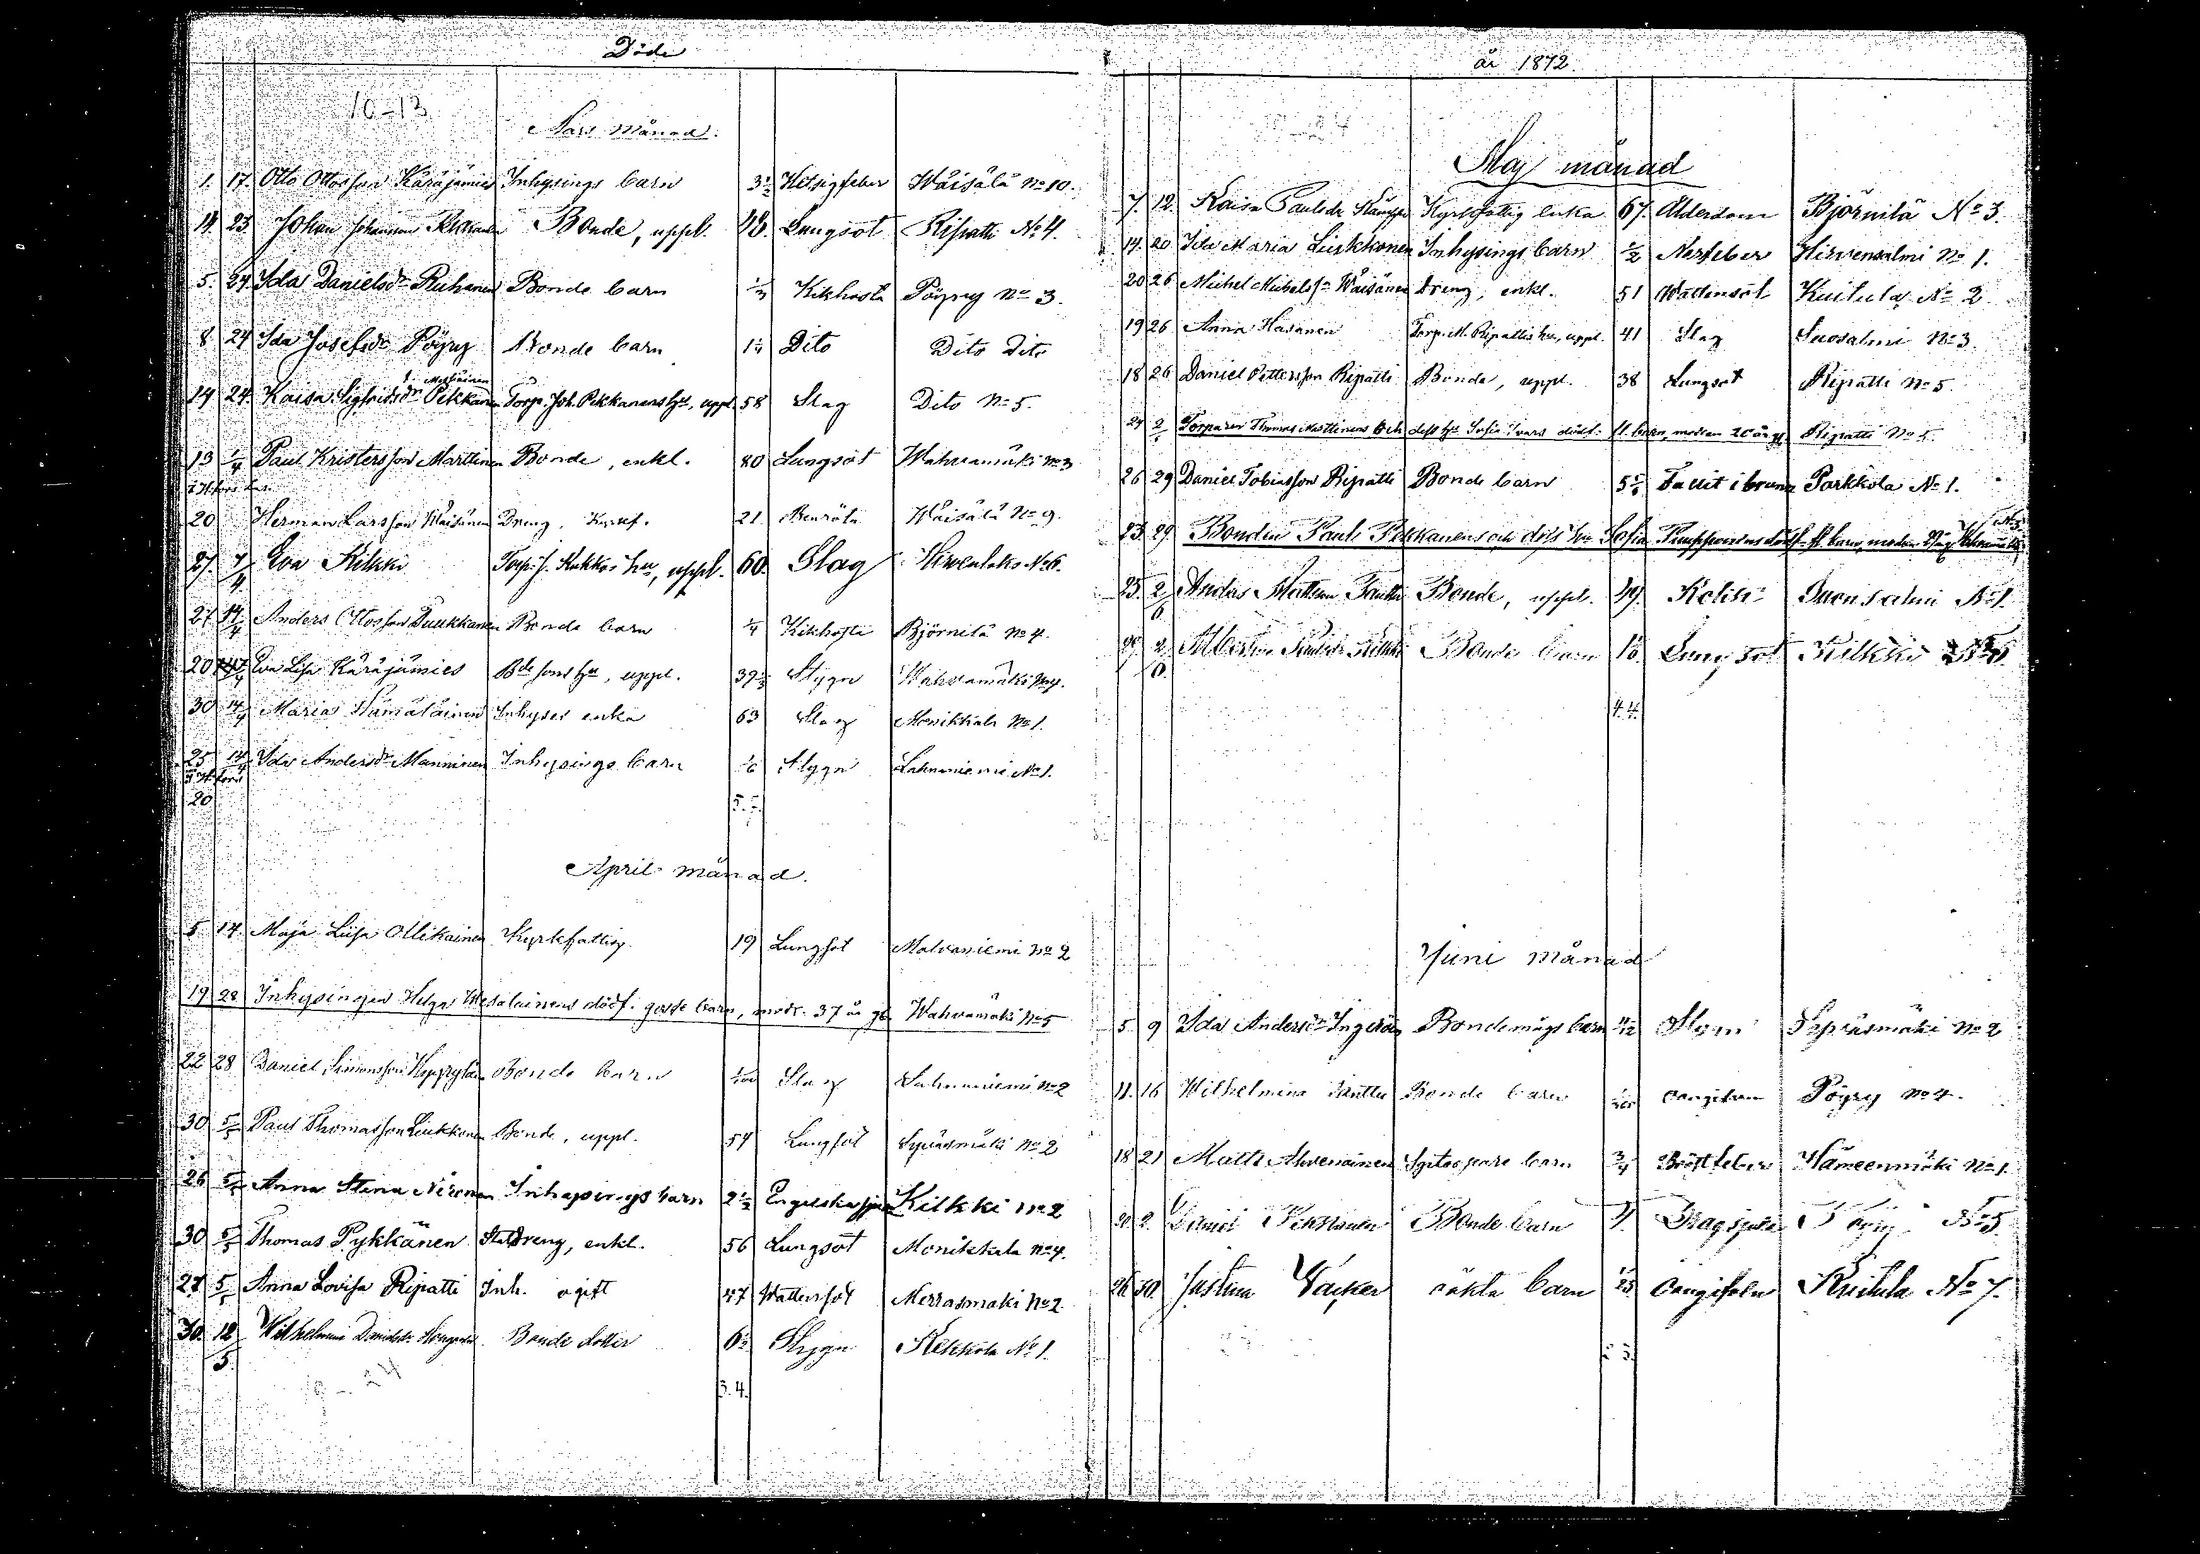 Döde
10-13
Mars månad.
1. 17. Otto Ottosson Käräjämies Inhysings barn 3½ Hetsigfeber Wäisälä No 10.
14. 23. Johan Johansson Bonde, uppl. 48. Lungsot Ripatti No 4.
5. 24 Ida Danielsdr Ruhanen Bonde barn ⅓ Kikhosta Pöyry No 3.
8 24 Ida Josefsdr Pöyry Bonde barn 1¼ Dito Dito Dito
f. Moilainen
14 24. Kaisa Sigfridsdr Pekkanen Torp. Joh. Pekkanens hu, uppl. 58 Slag Dito No 5.
13 1/4 Paul Kristersson Marttinen Bonde, enkl. 80 Lungsot Wahvamäki No 3
20 Herman Larsson Wäisänen Dreng. 21 Wäisälä No 9.
27. 7/4 Eva Kilkki Torp. J. Kukkos hu, uppl. 60. Slag Hirvenlaks No 6.
27. 14/4 Anders Ottosson Puukkanen Bonde barn ¼ Kikhosta Björnilä No 4.
20 14/4 Eva Lisa Käräjämies Bde sons hu, uppl. 39½ Stygn Wahvamäki No 4.
30 14/4 Maria Hämäläinen Inhyses enka 63 Slag Monikkala No 1.
25 14/4 Ida Andersdr Manninen Inhysings barn 1/6 Stygn Lahnaniemi No 1.
20 5. 7.
April månad.
5. 14. Maja Lisa Ollikainen Kyrkfattig. 19 Lungsot Malvaniemi No 2
19 28 Inhysingen Helga dödf. gosse barn, modr. 37 år gl. Wahvamäki No 5
22 28 Daniel Simonsson Bonde barn 1/100 Slag Lahnaniemi No 2
30 5/5 Paul Thomasson Liukkonen Bonde, uppl. 54 Lungsot Syväsmäki No 2
26 5/5 Anna Stina Nironen Inhysings barn 2½ Engelska sjukan Kilkki No 2
30 5/5 Thomas Pykkänen Statdreng, enkl. 56 Lungsot Monikkala No 4.
27 5/5 Anna Lovisa Ripatti Inh. ogift 47 Wattensot Merrasmäki No 2
30. 12/5. Wilhelmina Danielsdr Bonde dotter 6½ Stygn Kekkola No 1.
3. 4.
19-24
år 1872.
Maj månad
7. 12. Kaisa Paulsdr Kyrkfattig enka 67. Ålderdom Björnilä No 3.
14. 20 Ida Maria Liukkonen Inhysings barn ½ Nerfeber Hirvensalmi No 1.
20 26 Michel Michelsson Wäisänen Dreng, enkl. 51 Wattensot Kuitula No 2
19 26 Anna Hasanen Torp. M. Ripattis hu, uppl. 41 Slag Suosalmi No 3.
18 26 Daniel Pettersson Ripatti Bonde, uppl. 38 Lungsot Ripatti No 5.
24 2 Torparen Thomas Marttinens och dess hu Sofia Ivars dödf. fl. barn, modren 20 år gl. Ripatti No 5.
26 29 Daniel Tobiasson Ripatti Bonde barn Fallit i brunn Parkkola No 1.
23. 29. Bonden Paul Pekkanens och dess hu Sofia dödf. fl. barn, modren
25. 2/6 Anders Bonde, uppl. 49. Suonsalmi No 1.
2/6. Bonde barn Lungsot Kilkki
4.4.
Juni månad
5. 9 Ida Andersdr Ingeroin Bondemågs barn 11/12 Stygn Syväsmäki No 2
11. 16 Wilhelmina Janttu Bonde barn Oangifven Pöyry No 4.
18 21 Matts Ahvenainen barn ¾ Bröstfeber Hämeenmäki No 1.
30. 2. Daniel Pekkanen Bonde barn Slagsjuka Pöyry No 5.
26 30. Justina Vacker oäkta barn 1/25 Oangifven Kuitula No 7.
2 3.